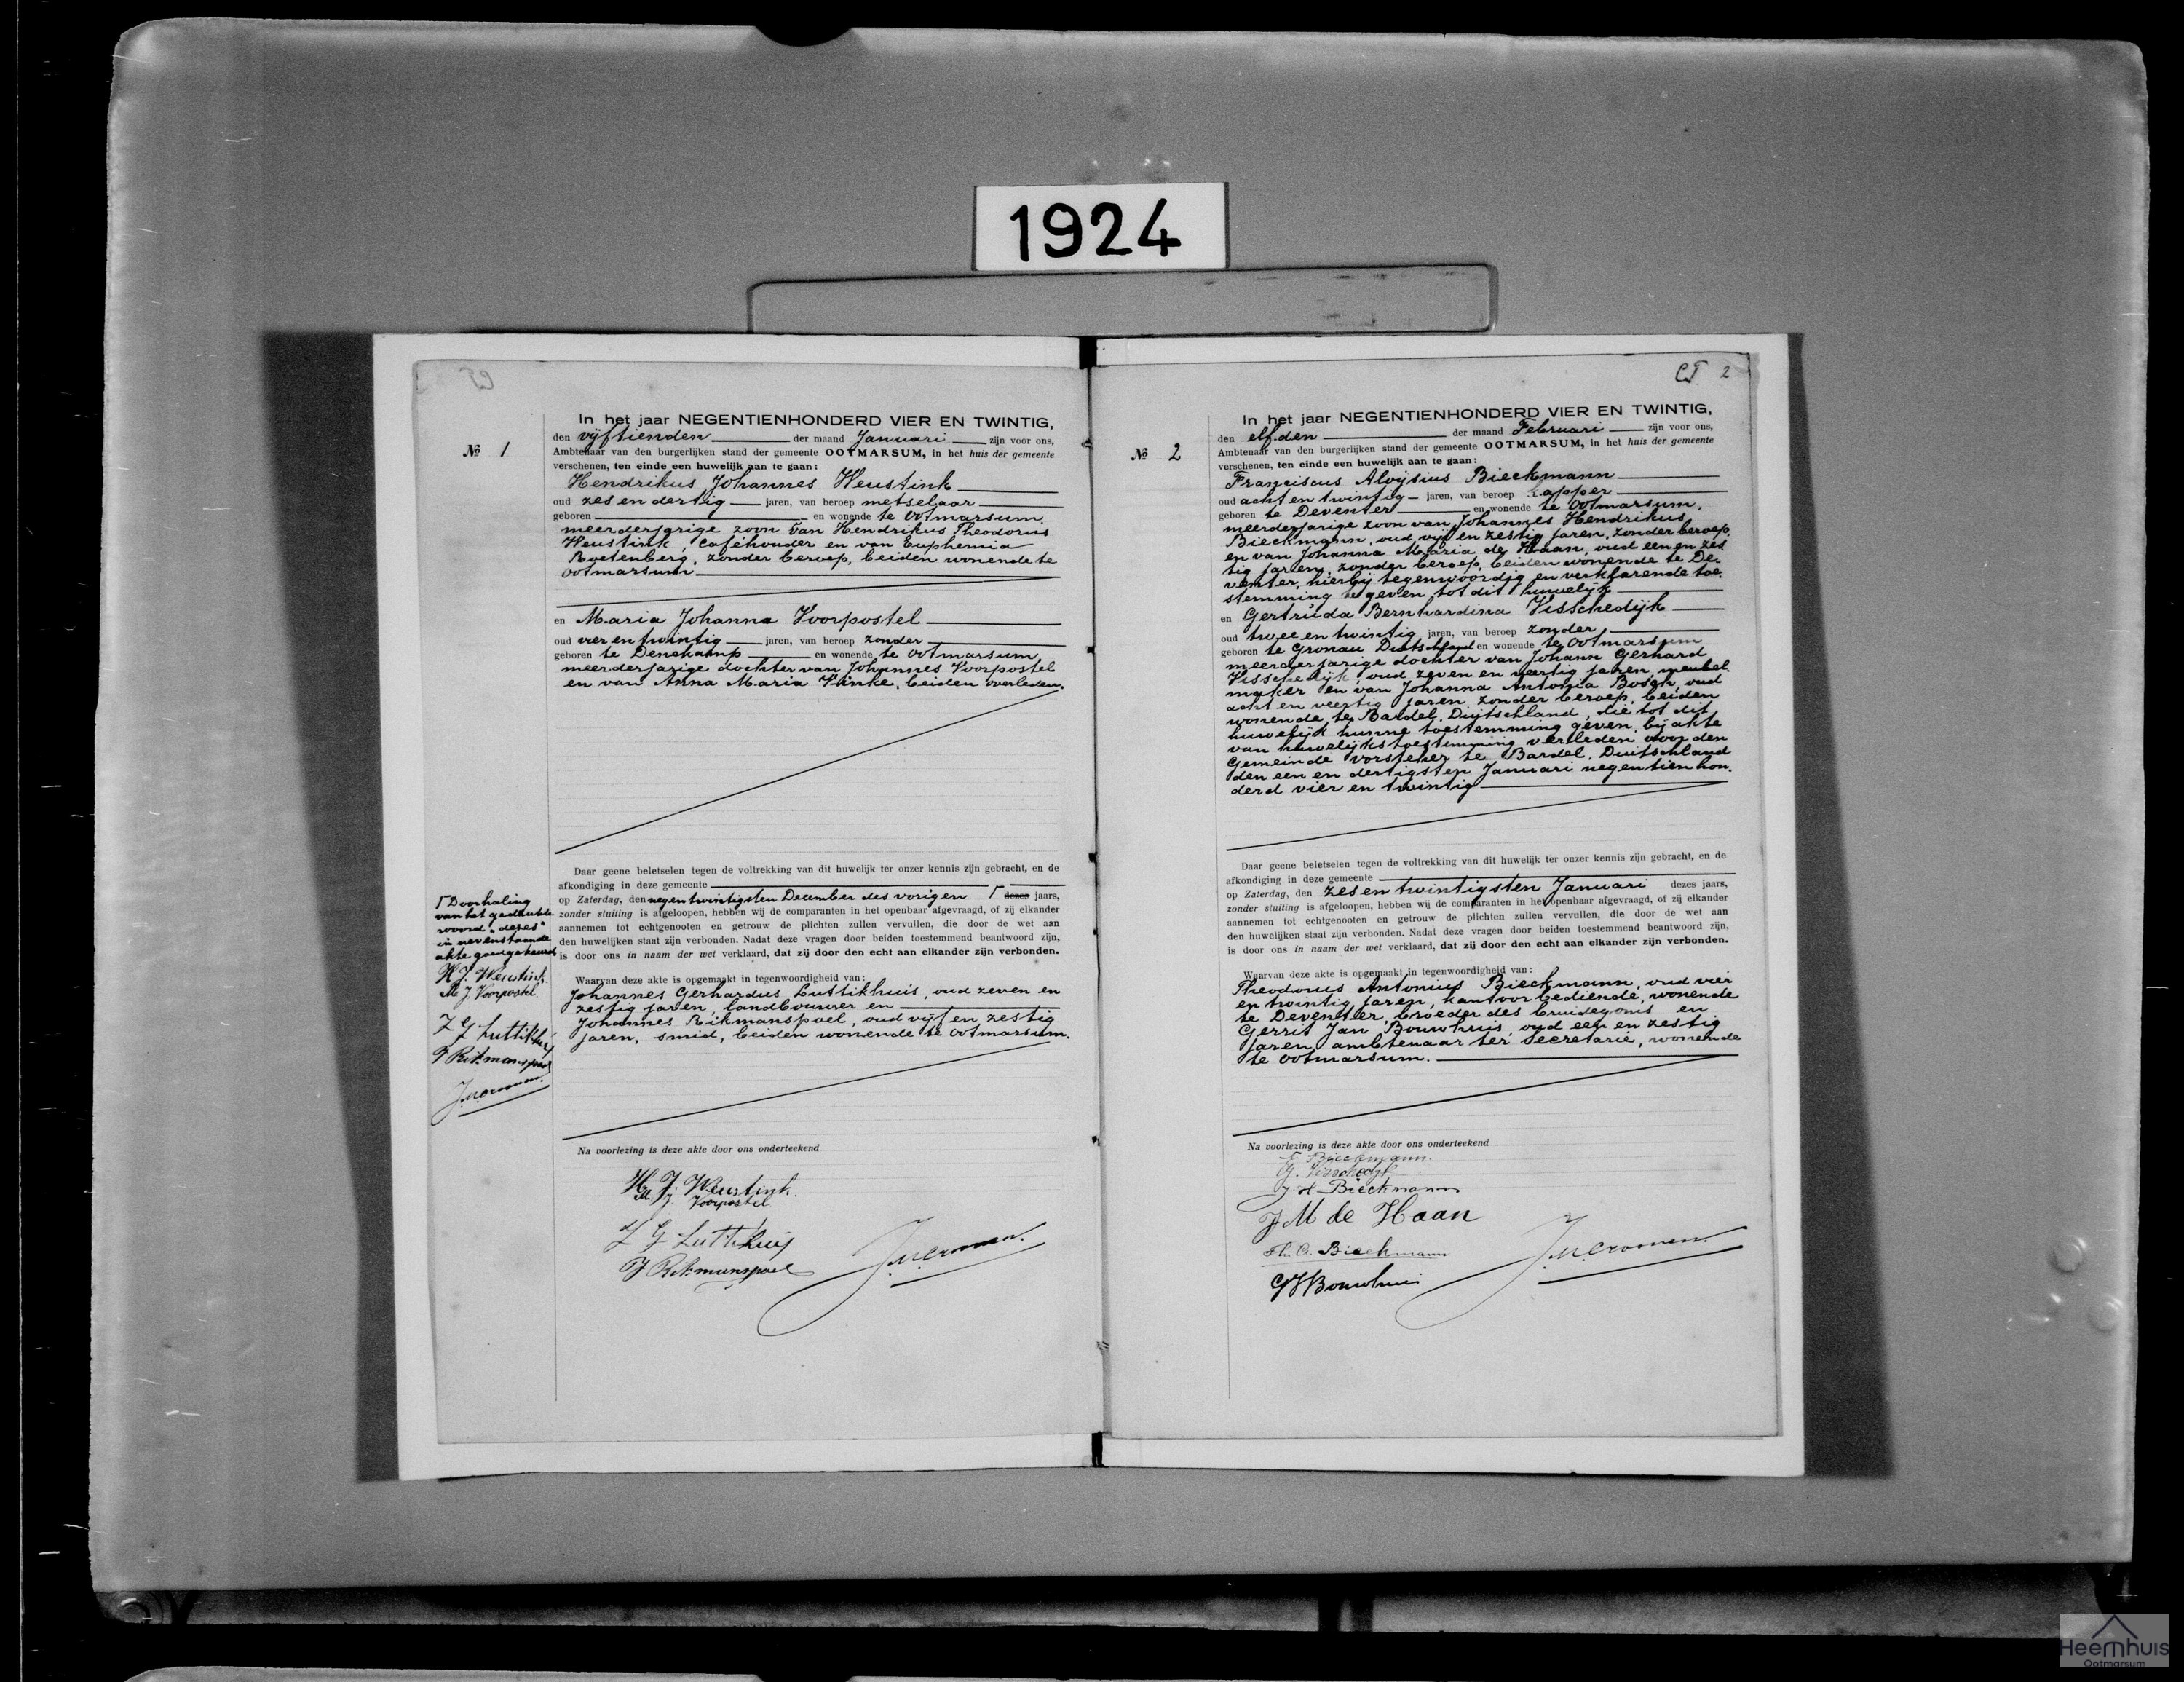 1924
In het jaar NEGENTIENHONDERD VIER EN TWINTIG,
№ 1
den vijftienden der maand Januari zijn voor ons,
Ambtenaar van den burgerlijken stand der gemeente OOTMARSUM, in het huis der gemeente
verschenen, ten einde een huwelijk aan te gaan:
Hendrikus Johannes Weustink
oud zes en dertig jaren, van beroep metselaar
geboren en wonende te Ootmarsum,
meerderjarige zoon van Hendrikus Theodorus
Weustink, caféhouder en van Euphemia
Roetenberg, zonder beroep, beiden wonende te
Ootmarsum
en Maria Johanna Voorpostel
oud vier en twintig jaren, van beroep zonder
geboren te Denekamp en wonende te Ootmarsum
meerderjarige dochter van Johannes Voorpostel
en van Anna Maria beiden overleden.
Daar geene beletselen tegen de voltrekking van dit huwelijk ter onzer kennis zijn gebracht, en de
afkondiging in deze gemeente
op Zaterdag, den negen twintigsten December des vorigen Γ dezes jaars,
zonder stuiting is afgeloopen, hebben wij de comparanten in het openbaar afgevraagd, of zij elkander
aannemen tot echtgenooten en getrouw de plichten zullen vervullen, die door de wet aan
den huwelijken staat zijn verbonden. Nadat deze vragen door beiden toestemmend beantwoord zijn,
is door ons in naam der wet verklaard, dat zij door den echt aan elkander zijn verbonden.
Γ Doorhaling
van het gedrukte
woord "dezes"
in nevenstaande
akte goedgekeurd
H J. Weustink
M J Voorpostel
J G Luttikhuis
J Rikmanspoel
Waarvan deze akte is opgemaakt in tegenwoordigheid van:
Johannes Gerhardus Luttikhuis, oud zeven en
zestig jaren, landbouwer en
Johannes Rikmanspoel, oud vijf en zestig
jaren, smid, beiden wonende te Ootmarsum.
Na voorlezing is deze akte door ons onderteekend
H. J. Weustink
M J. Voorpostel
J G Luttikhuis
J Rikmanspoel
2
In het jaar NEGENTIENHONDERD VIER EN TWINTIG,
№ 2
den elfden der maand Februari zijn voor ons,
Ambtenaar van den burgerlijken stand der gemeente OOTMARSUM, in het huis der gemeente
verschenen, ten einde een huwelijk aan te gaan:
Franciscus Aloysius Bieckmann
oud acht en twintig jaren, van beroep kapper
geboren te Deventer en wonende te Ootmarsum,
meerderjarige zoon van Johannes Hendrikus
Bieckmann, oud vijf en zestig jaren, zonder beroep,
en van Johanna Maria de Haan, oud een en zes
tig jaren, zonder beroep, beiden wonende te De-
venter, hierbij tegenwoordig en verklarende toe-
stemming te geven tot dit huwelijk
en Gertruda Bernhardina Visschedijk
oud twee en twintig jaren, van beroep zonder,
geboren te Gronau Duitschland en wonende te Ootmarsum
meerderjarige dochter van Johann Gerhard
Visschedijk, oud zeven en veertig jaren, meubel-
maker en van Johanna Antonia Bosch, oud
acht en veertig jaren, zonder beroep, beiden
wonende te Bardel, Duitschland, die tot dit
huwelijk hunne toestemming geven, bij akte
van huwelijkstoestemming verleden voor den
Gemeinde vorsteher te Bardel, Duitschland
den een en dertigsten Januari negentien hon-
derd vier en twintig
Daar geene beletselen tegen de voltrekking van dit huwelijk ter onzer kennis zijn gebracht, en de
afkondiging in deze gemeente
op Zaterdag, den zes en twintigsten Januari dezes jaars,
zonder stuiting is afgeloopen, hebben wij de comparanten in het openbaar afgevraagd, of zij elkander
aannemen tot echtgenooten en getrouw de plichten zullen vervullen, die door de wet aan
den huwelijken staat zijn verbonden. Nadat deze vragen door beiden toestemmend beantwoord zijn,
is door ons in naam der wet verklaard, dat zij door den echt aan elkander zijn verbonden.
Waarvan deze akte is opgemaakt in tegenwoordigheid van:
Theodorus Antonius Bieckmann, oud vier
en twintig jaren, kantoorbediende, wonende
te Deventer, broeder des bruidegoms en
Gerrit Jan Bouwhuis, oud een en zestig
jaren, ambtenaar ter secretarie, wonende
te Ootmarsum.
Na voorlezing is deze akte door ons onderteekend
F Bieckmann.
G. Visschedijk
J H Bieckmann
J M de Haan
Th. A. Bieckmann
G J Bouwhuis
Heemhuis
Ootmarsum